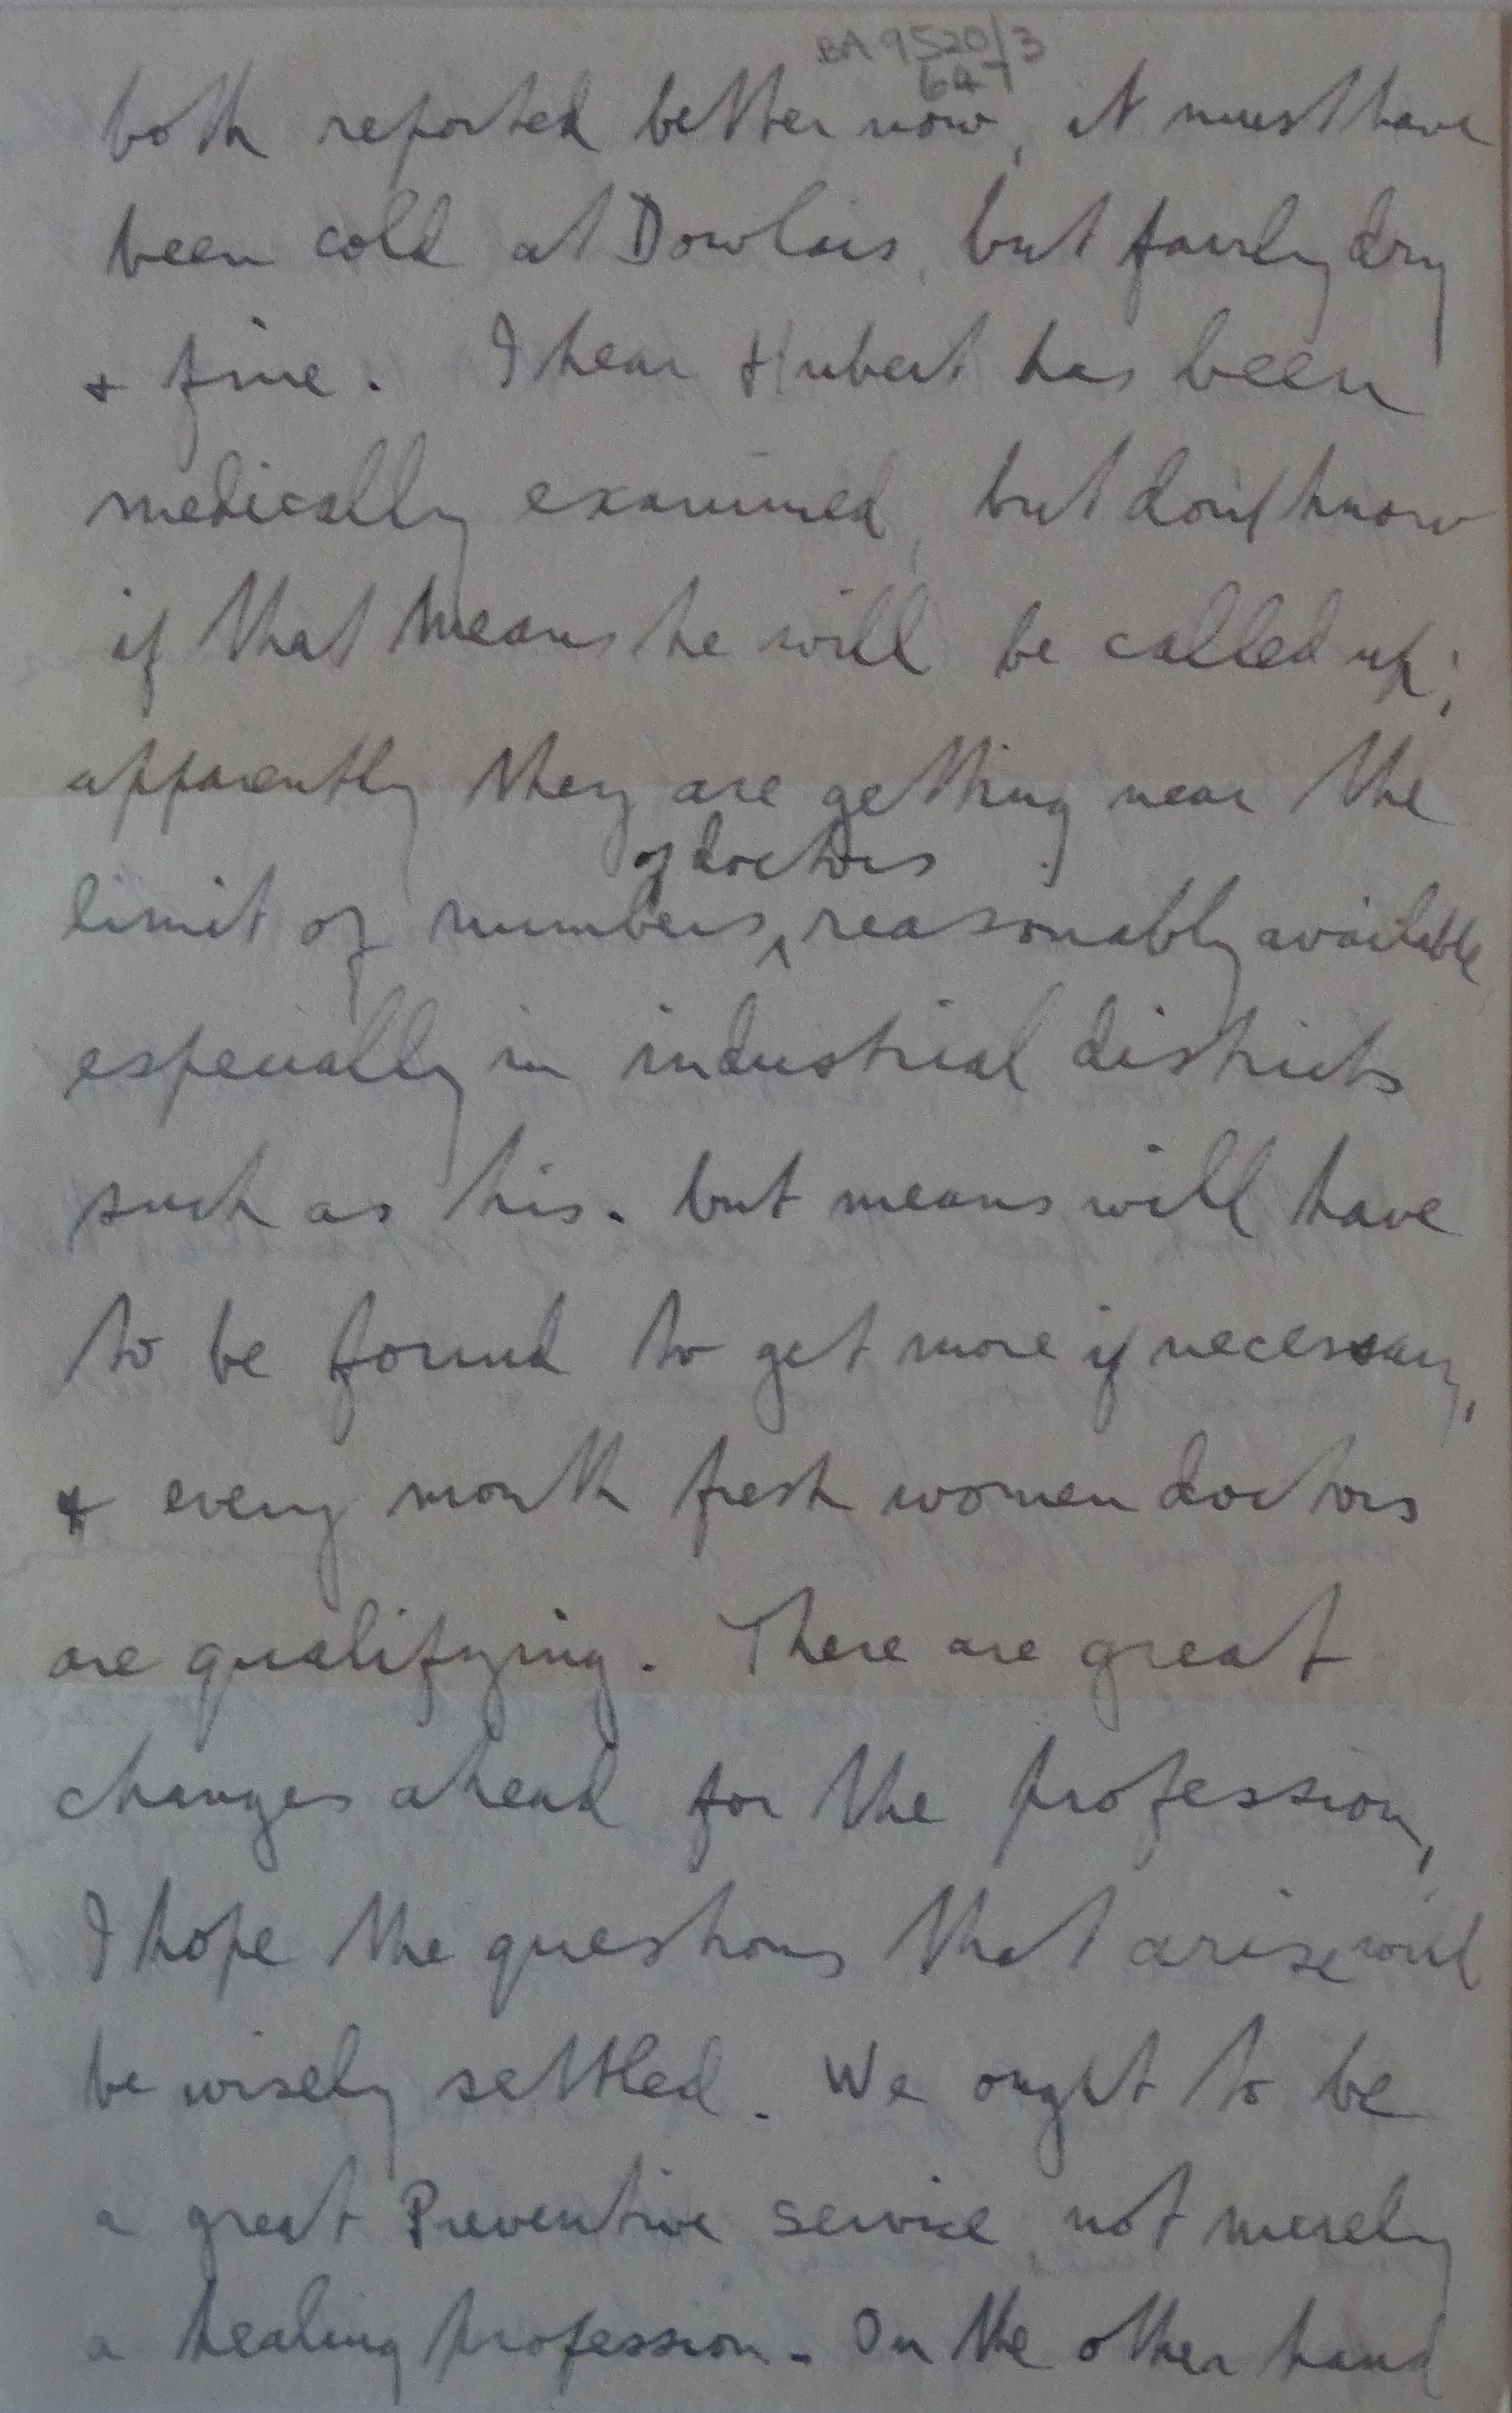 BA 9520/3
647
both reported better now, it must have
been cold at Dowlais, but fairly dry
+ fine. I hear Hubert has been
medically examined, but don't know
if that means he will be called up;
apparently they are getting near the
of doctors
limit of numbers ‸ reasonably available
especially in industrial districts
such as his. but means will have
to be found to get more if necessary,
+ every month fresh women doctors
are qualifying. There are great
changes ahead for the profession,
I hope the questions that arise will
be wisely settled. We ought to be
a great Preventive service, not merely
a healing profession. On the other hand